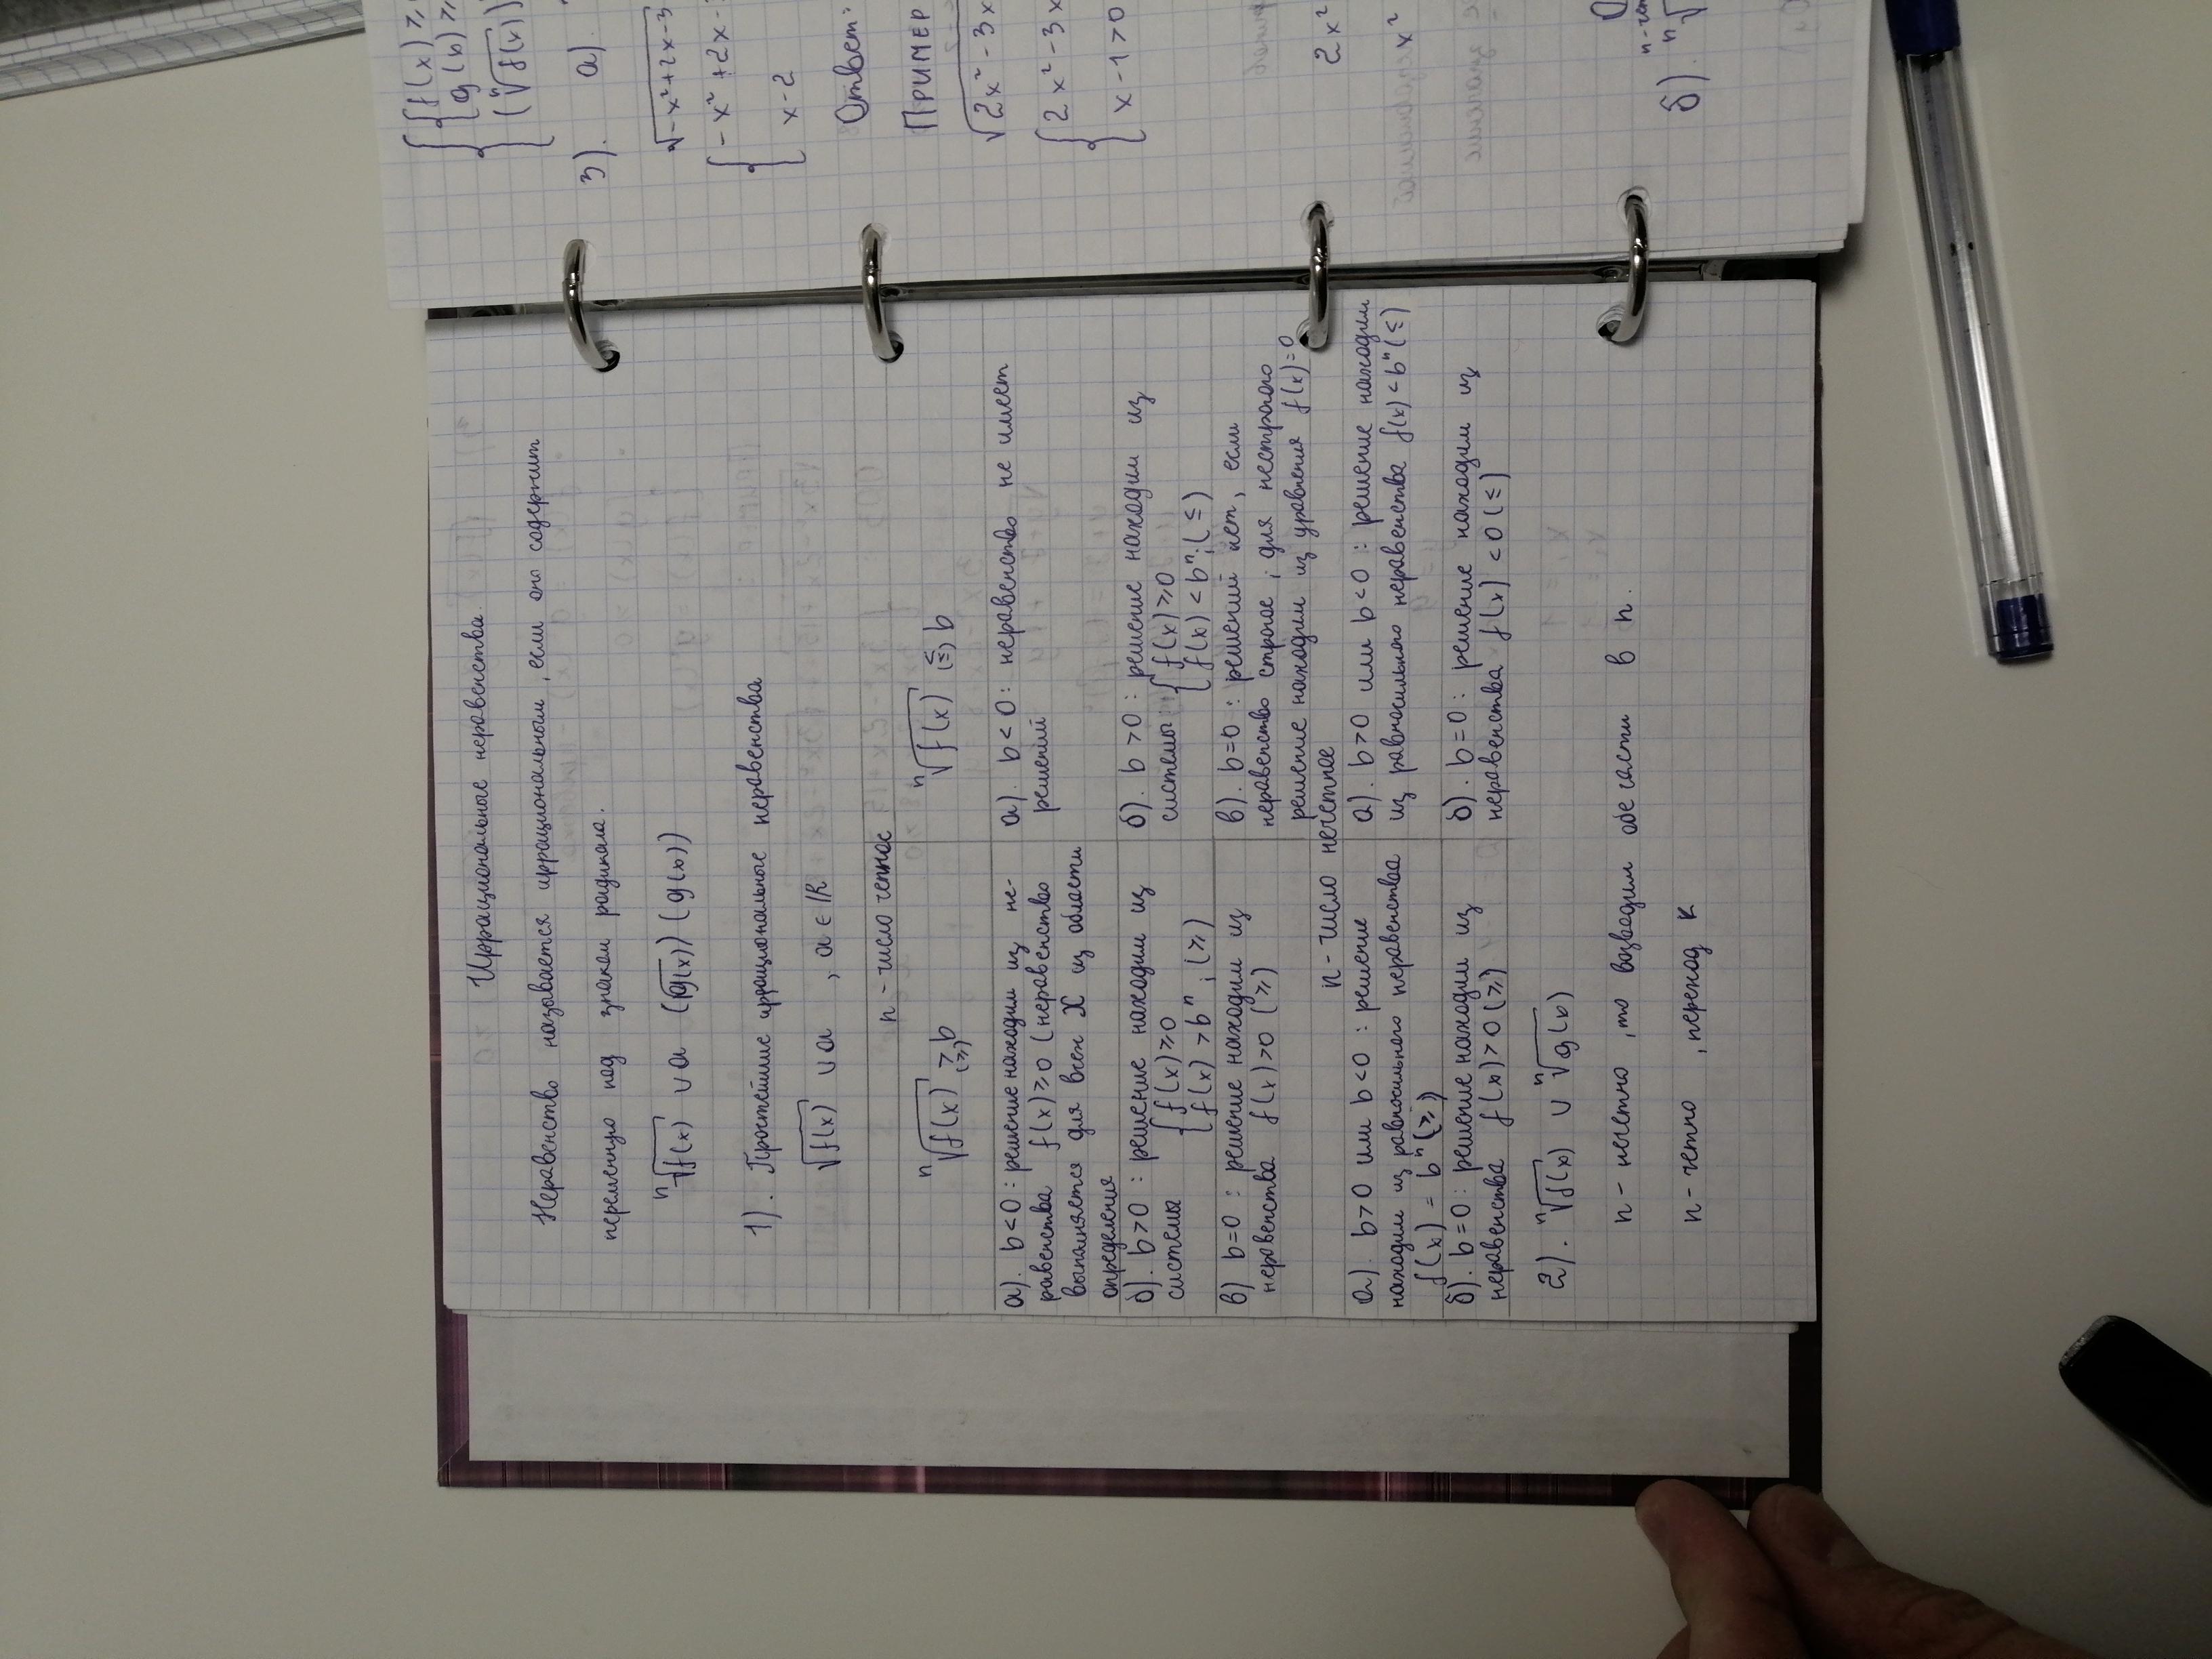 Иррациональные неравенства.
Неравенство называется иррациональным, если оно содержит
переменную под знаком радикала.
ⁿ√f(x) ∪ a (√g(x)) (g(x))
1). Простейшие иррациональные неравенства
√f(x) ∪ a , a ∈ ℝ
n - число четное
ⁿ√f(x) > (≥) b
а). b < 0 : решение находим из не-
равенства f(x) ≥ 0 (неравенство
выполняется для всех X из области
определения
б). b > 0 : решение находим из
системы { f(x) ≥ 0
{ f(x) > bⁿ ; (≥)
в) b = 0 : решение находим из
неравенства f(x) > 0 (≥)
ⁿ√f(x) < (≤) b
а). b < 0 : неравенство не имеет
решений
б). b > 0 : решение находим из
системы { f(x) ≥ 0
{ f(x) < bⁿ ; (≤)
в). b = 0 : решений нет, если
неравенство строгое ; для нестрогого
решение находим из уравнения f(x) = 0
n - число нечетное
а). b > 0 или b < 0 : решение
находим из равносильного неравенства
f(x) = bⁿ (≥)
б). b = 0 : решение находим из
неравенства f(x) > 0 (≥)
а). b > 0 или b < 0 : решение находим
из равносильно неравенства f(x) < bⁿ (≤)
б). b = 0 : решение находим из
неравенства f(x) < 0 (≤)
2). ⁿ√f(x) ∪ ⁿ√g(x)
n - нечетно , то возводим обе части в n.
n - четно , переход к
{ { f(x) ≥
{ { g(x) ≥
{ (ⁿ√f(x))
3). а).
√-x²+2x-3
{ -x²+2x-
{ x-2
Ответ:
ПРИМЕР
√2x²-3x
{ 2x²-3x
{ x-1>0
2x²
x²
б). ⁿ√